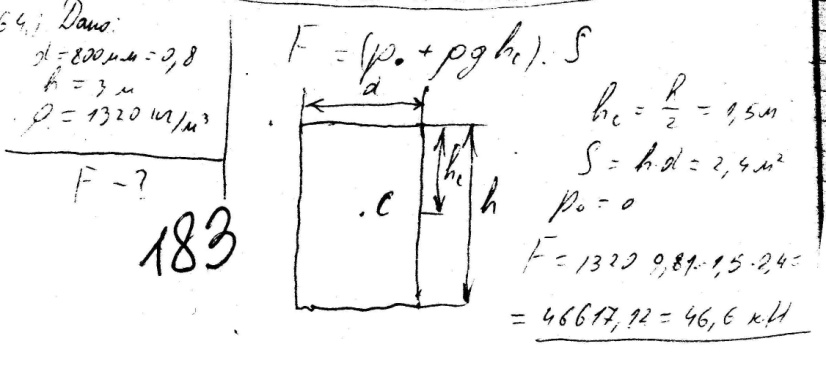 64.) Дано:
d = 800 мм = 0,8
h = 3 м
ρ = 1320 кг/м³
F - ?
183
F = (p₀ + ρg h_c) · S
d
.C
h_c
h
h_c = h/2 = 1,5 м
S = h·d = 2,4 м²
p₀ = 0
F = 1320 9,81·1,5·2,4 =
= 46617,12 = 46,6 кН